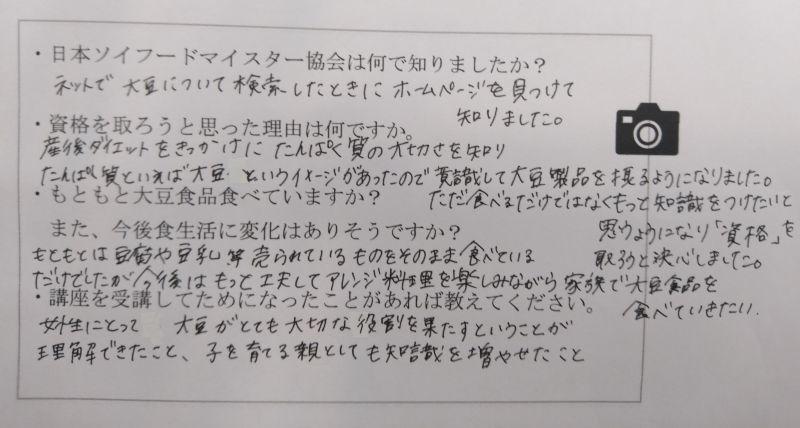 ・日本ソイフードマイスター協会は何で知りましたか？
ネットで 大豆について 検索 したときに ホームページを見つけて
知りました。
・資格を取ろうと思った理由は何ですか。
産後ダイエットをきっかけに たんぱく質の大切さを知り
たんぱく質といえば大豆 というイメージがあったので 意識して大豆製品を摂るようになりました。
ただ食べるだけではなくもっと知識をつけたいと
思うようになり「資格」を
取ろうと決心しました。
・もともと大豆食品食べていますか？
また、今後食生活に変化はありそうですか？
もともとは豆腐や豆乳 等 売られているものをそのまま食べている
だけでしたが今後はもっと工夫してアレンジ料理を楽しみながら家族で大豆食品を
食べていきたい.
・講座を受講してためになったことがあれば教えてください。
女性にとって 大豆がとても大切な役割を果たすということが
理解できたこと、子を育てる親としても知識を増やせたこと